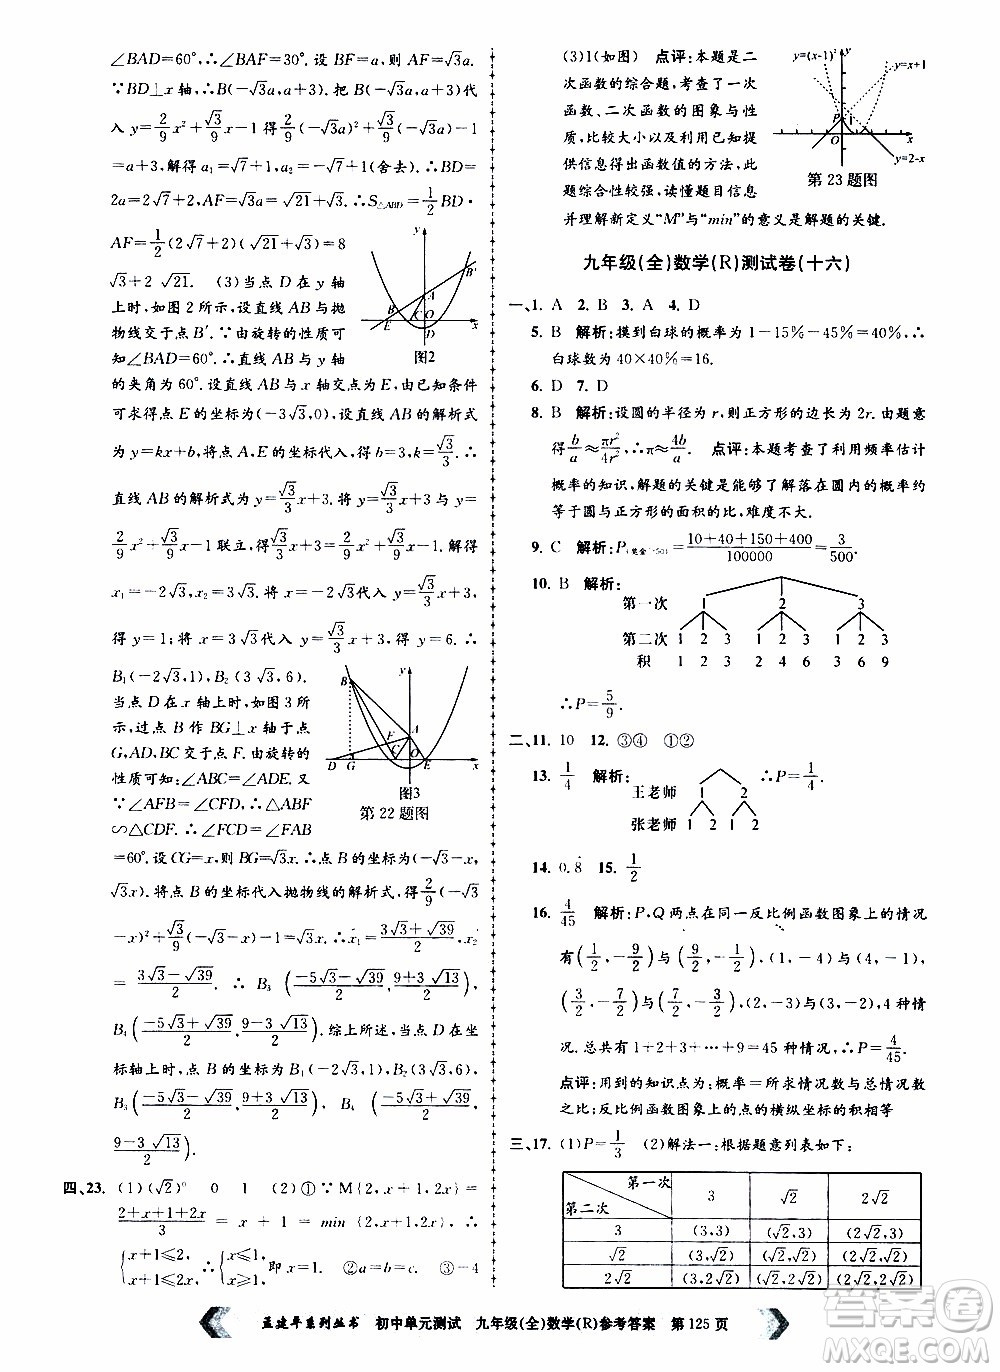 ∠BAD=60°,∴∠BAF=30°. 设 BF=a,则 AF=√3a.
∵BD⊥x 轴,∴B(-√3a,a+3). 把 B(-√3a,a+3)代
入 y=2/9x²+√3/9x-1 得 2/9(-√3a)²+√3/9(-√3a)-1
=a+3,解得 a₁=√7+1,a₂=-√7+1(舍去).∴BD=
2a=2√7+2,AF=√3a=√21+√3.∴S△ABD=1/2BD·
AF=1/2(2√7+2)(√21+√3)=8
√3+2√21. (3)当点 D 在 y 轴
上时,如图 2 所示,设直线 AB 与抛
物线交于点 B′.∵由旋转的性质可
知∠BAD=60°.∴直线 AB 与 y 轴
的夹角为 60°.设直线 AB 与 x 轴交点为 E,由已知条件
可求得点 E 的坐标为(-3√3,0),设直线 AB 的解析式
为 y=kx+b,将点 A,E 的坐标代入解析式得 b=3,k=√3/3.
直线 AB 的解析式为 y=√3/3x+3.将 y=√3/3x+3 与 y=
2/9x²+√3/9x-1 联立,得√3/3x+3=2/9x²+√3/9x-1.解得
x₁=-2√3,x₂=3√3.将 x=-2√3代入 y=√3/3x+3.
得 y=1;将 x=3√3代入 y=√3/3x+3,得 y=6.∴
B₁(-2√3,1),B₂(3√3,6).
当点 D 在 x 轴上时,如图 3 所
示,过点 B 作 BG⊥x 轴于点
G,AD,BC交于点 F.由旋转的
性质可知∠ABC=∠ADE.又
∵∠AFB=∠CFD,∴△ABF
∽△CDF.∴∠FCD=∠FAB
=60°.设 CG=x,则 BG=√3x.∴点 B 的坐标为(-√3-x,
√3x).将点 B 的坐标代入抛物线的解析式,得2/9(-√3
-x)²+√3/9(-√3-x)-1=√3x.∴x₁=(3√3+√39)/2,x₂
=(3√3-√39)/2. ∴ B₃((-5√3-√39)/2,(9+3√13)/2),
B₄((-5√3+√39)/2,(9-3√13)/2).综上所述,当点 D 在坐
标轴上时,点 B 的坐标为 B₁(-2√3,1),B₂(3√3,6),
B₃((-5√3-√39)/2,(9+3√13)/2),B₄((-5√3+√39)/2,
(9-3√13)/2).
图2
图3
第 22 题图
四、23. (1)(√2)° 0 1 (2)①∵M{2,x+1,2x}=
(2+x+1+2x)/3 = x + 1 = min {2,x+1,2x},∴
{x+1≤2, x+1≤2x.∴{x≤1, x≥1.即 x=1. ②a=b=c. ③-4
(3)1(如图) 点评:本题是二
次函数的综合题,考查了一次
函数、二次函数的图象与性
质,比较大小以及利用图象提
供信息得出函数值的方法,此
题综合性较强,读懂题目信息
并理解新定义“M”与“min”的意义是解题的关键.
y=(x-1)²
y=x+1
y=2-x
第 23 题图
九年级(全)数学(R)测试卷(十六)
一、1. A 2. B 3. A 4. D
5. B 解析:摸到白球的概率为 1-15%-45%=40%,∴
白球数为 40×40%=16.
6. D 7. D
8. B 解析:设圆的半径为 r,则正方形的边长为 2r.由题意
得b/a≈πr²/4r²,∴π≈4b/a. 点评:本题考查了利用频率估计
概率的知识,解题的关键是能够了解落在圆内的概率约
等于圆与正方形的面积的比,难度不大.
9. C 解析:P=(10+40+150+400)/100000=3/500.
10. B 解析:
第一次 1 2 3
第二次 1 2 3 1 2 3 1 2 3
积 1 2 3 2 4 6 3 6 9
∴P=5/9.
二、11. 10 12. ③④ ①②
13. 1/4 解析: ∴P=1/4.
王老师 1 2
张老师 1 2 1 2
14. 0.8 15. 1/2
16. 4/45 解析:P、Q 两点在同一反比例函数图象上的情况
有(1/2,-9/2)与(2/2,-9/2)
(3/2,-5/2)与(5/2,-3/2),(2,-3)与(3,-2),4 种情
况.总情况 1+2+3+…+9=45 种情况,∴P=4/45.
点评:用到的知识点为:概率=所求情况数与总情况数
之比;反比例函数上的点的横纵坐标的积相等
三、17. (1)P=1/3 (2)解法一:根据题意列表如下:
第一次 第二次 3 √2 2√2
3 (3,3) (√2,3) (2√2,3)
√2 (3,√2) (√2,√2) (2√2,√2)
2√2 (3,2√2) (√2,2√2) (2√2,2√2)
孟建平系列丛书 初中单元测试 九年级(全)数学(R)参考答案 第 125 页
答案圈
MXQE.COM